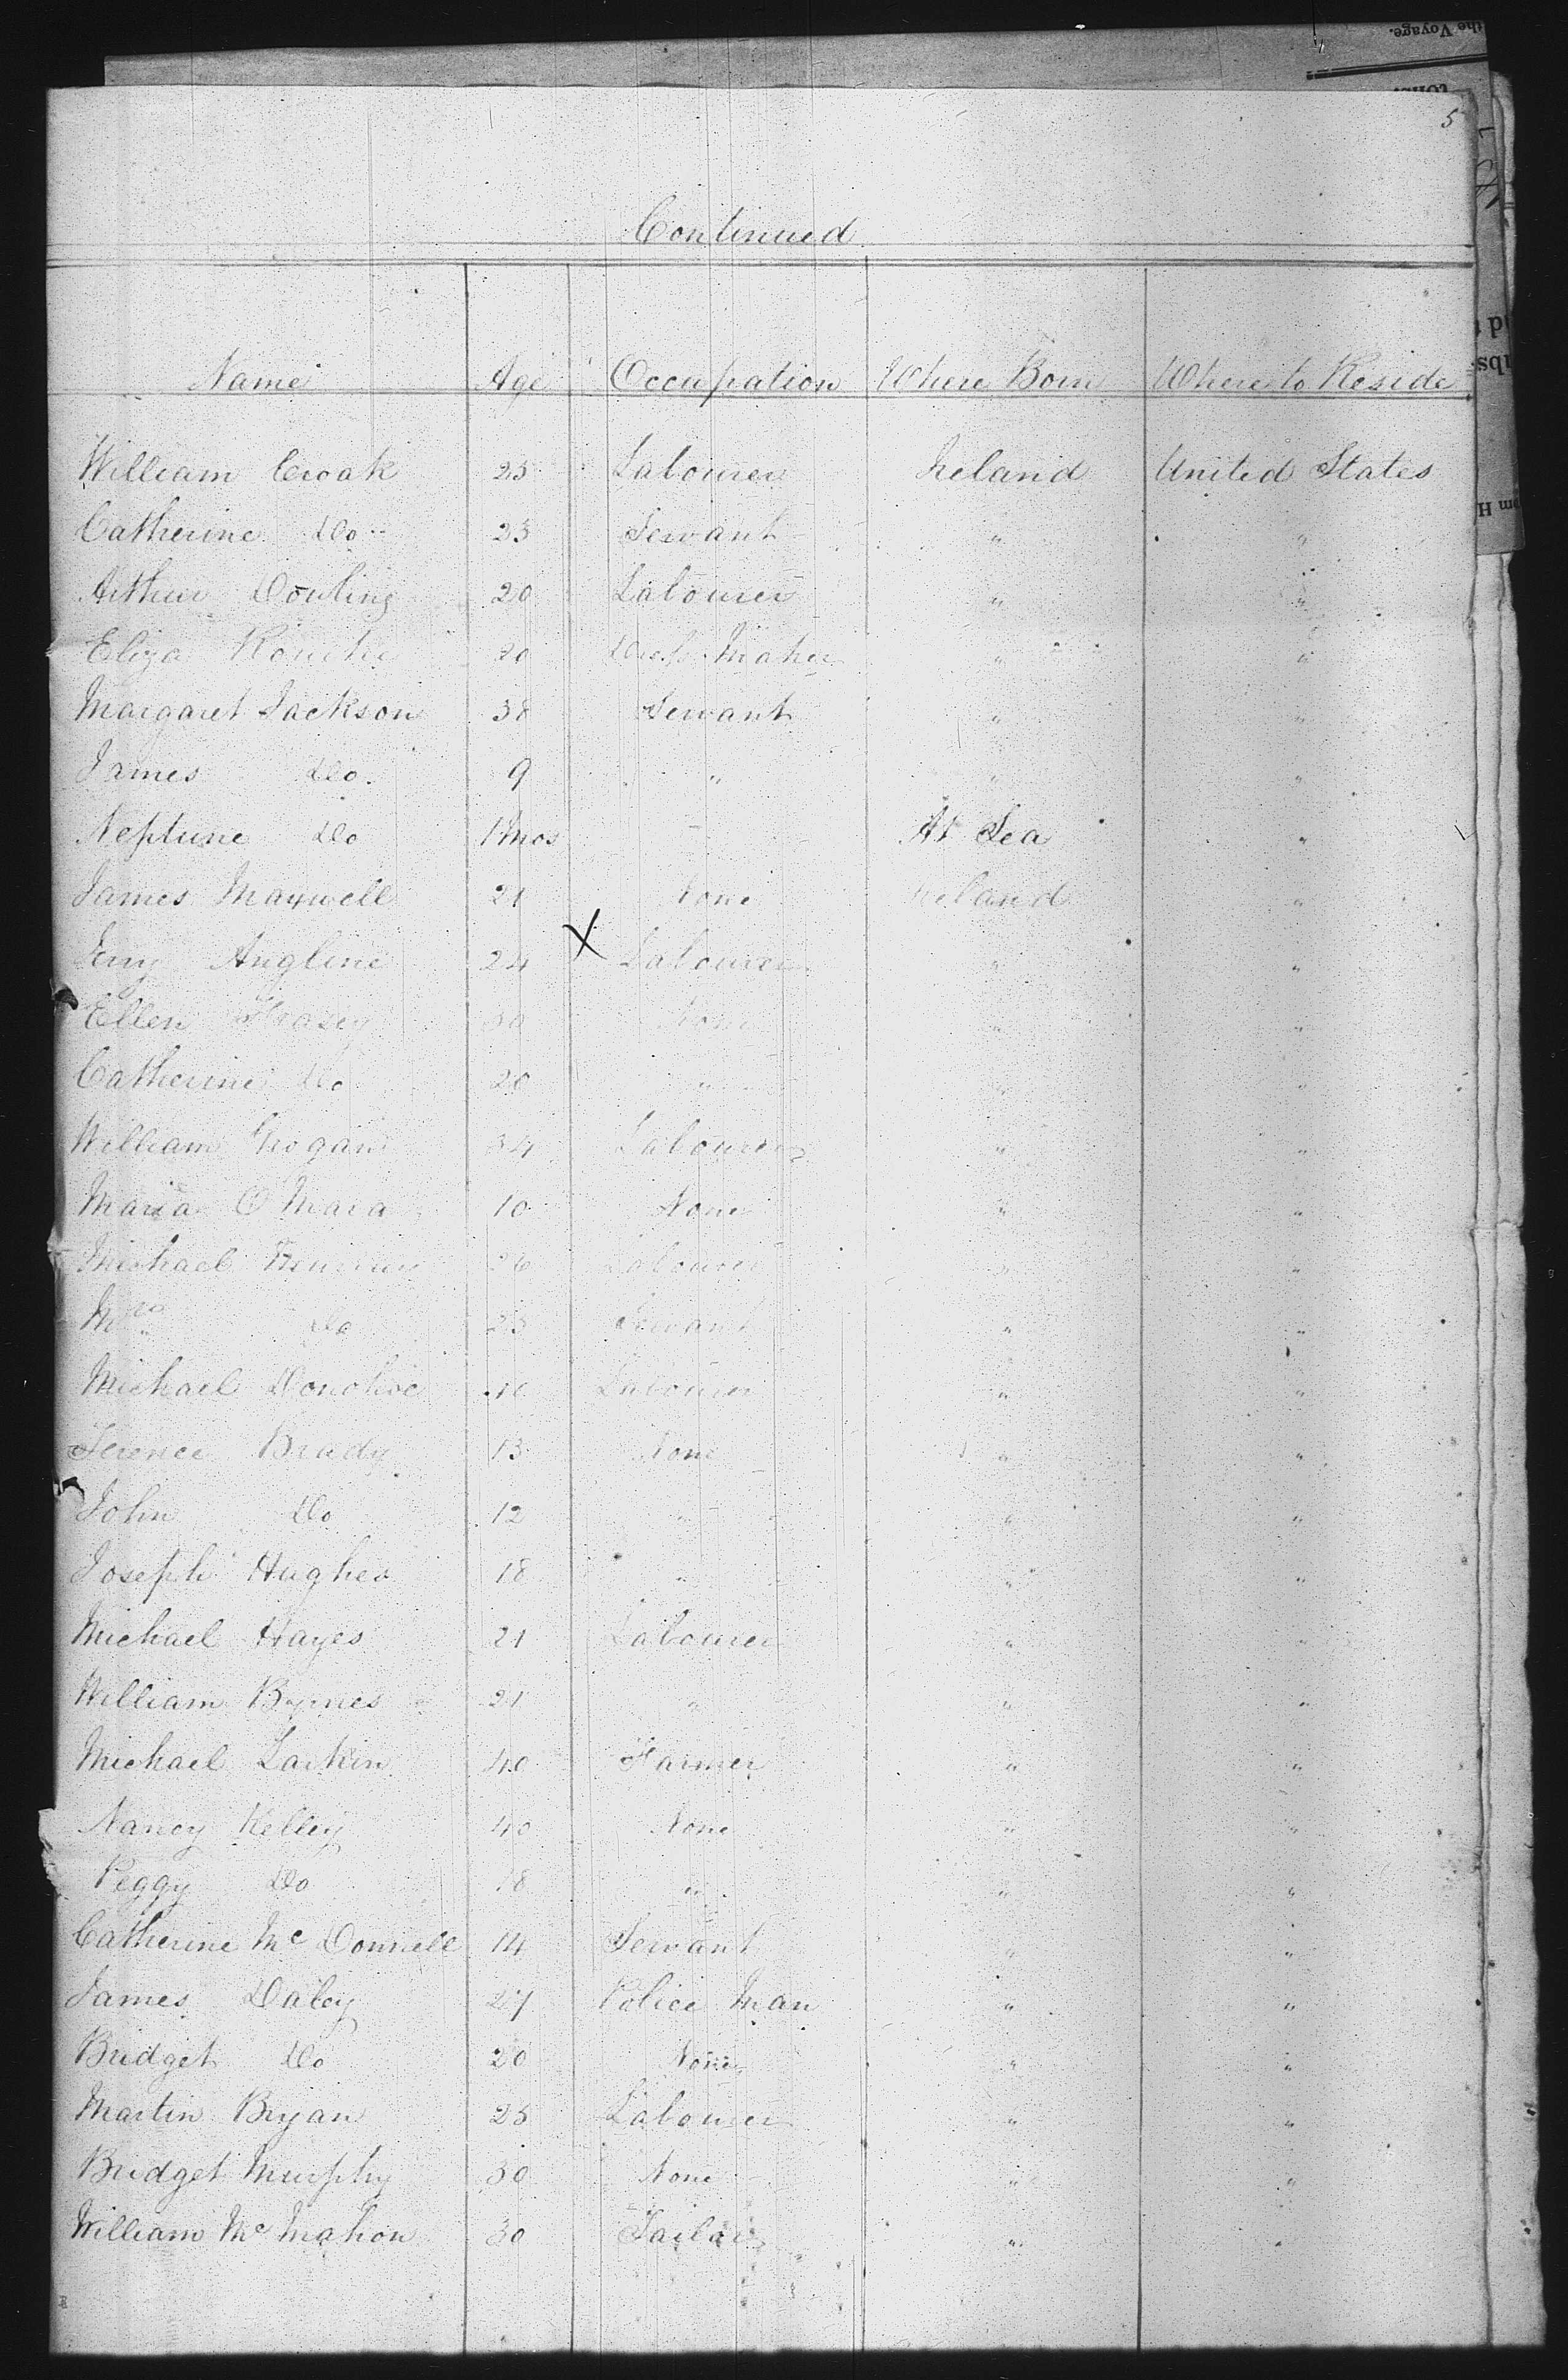 5
Continued
Name Age Occupation Where Born Where to Reside
William Croak 25 Labourer Ireland United States
Catherine Do 23 Servant " "
Arthur Dowling 20 Labourer " "
Eliza 20 Dress Maker " "
Margaret Jackson 38 Servant " "
James Do 9 " " "
Neptune Do 1 Mos - At Sea "
James Maxwell 21 None Ireland "
Angline 24 X Labourer " "
Ellen 30 None " "
Catherine Do 20 " " "
William Grogan 34 Labourer " "
Maria O Mara 10 None " "
Michael 26 Labourer " "
Mrs Do 25 Servant " "
Michael Donohoe Labourer " "
Terence Brady 13 None " "
John Do 12 " " "
Joseph Hughes 18 " " "
Michael Hayes 21 Labourer " "
William Byrnes 21 " " "
Michael Larkin 40 Farmer " "
Nancy Kelley 40 None " "
Peggy Do 18 " " "
Catherine Mc Donnell 14 Servant " "
James Daley 27 Police Man " "
Bridget Do 20 None " "
Martin Bryan 25 Labourer " "
Bridget Murphy 30 None " "
William Mc Mahon 30 Tailor " "